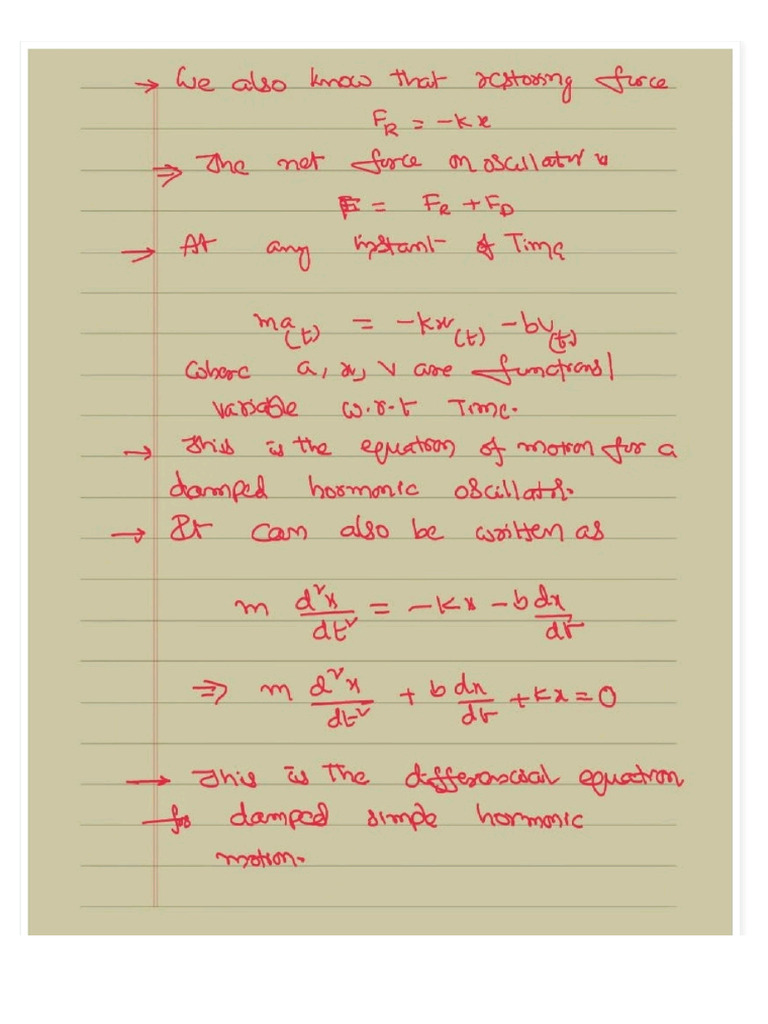 → We also know that restoring force
F_R = -kx
⇒ The net force on oscillator is
F = F_R + F_D
→ At any instant of Time
ma(t) = -kx(t) - bv(t)
where a, x, v are functions/
variable w.r.t Time.
→ This is the equation of motion for a
damped hormonic oscillator.
→ It can also be written as
m d²x/dt² = -kx - b dx/dt
⇒ m d²x/dt² + b dx/dt + kx = 0
→ This is the differencial equation
for damped simple hormonic
motion.